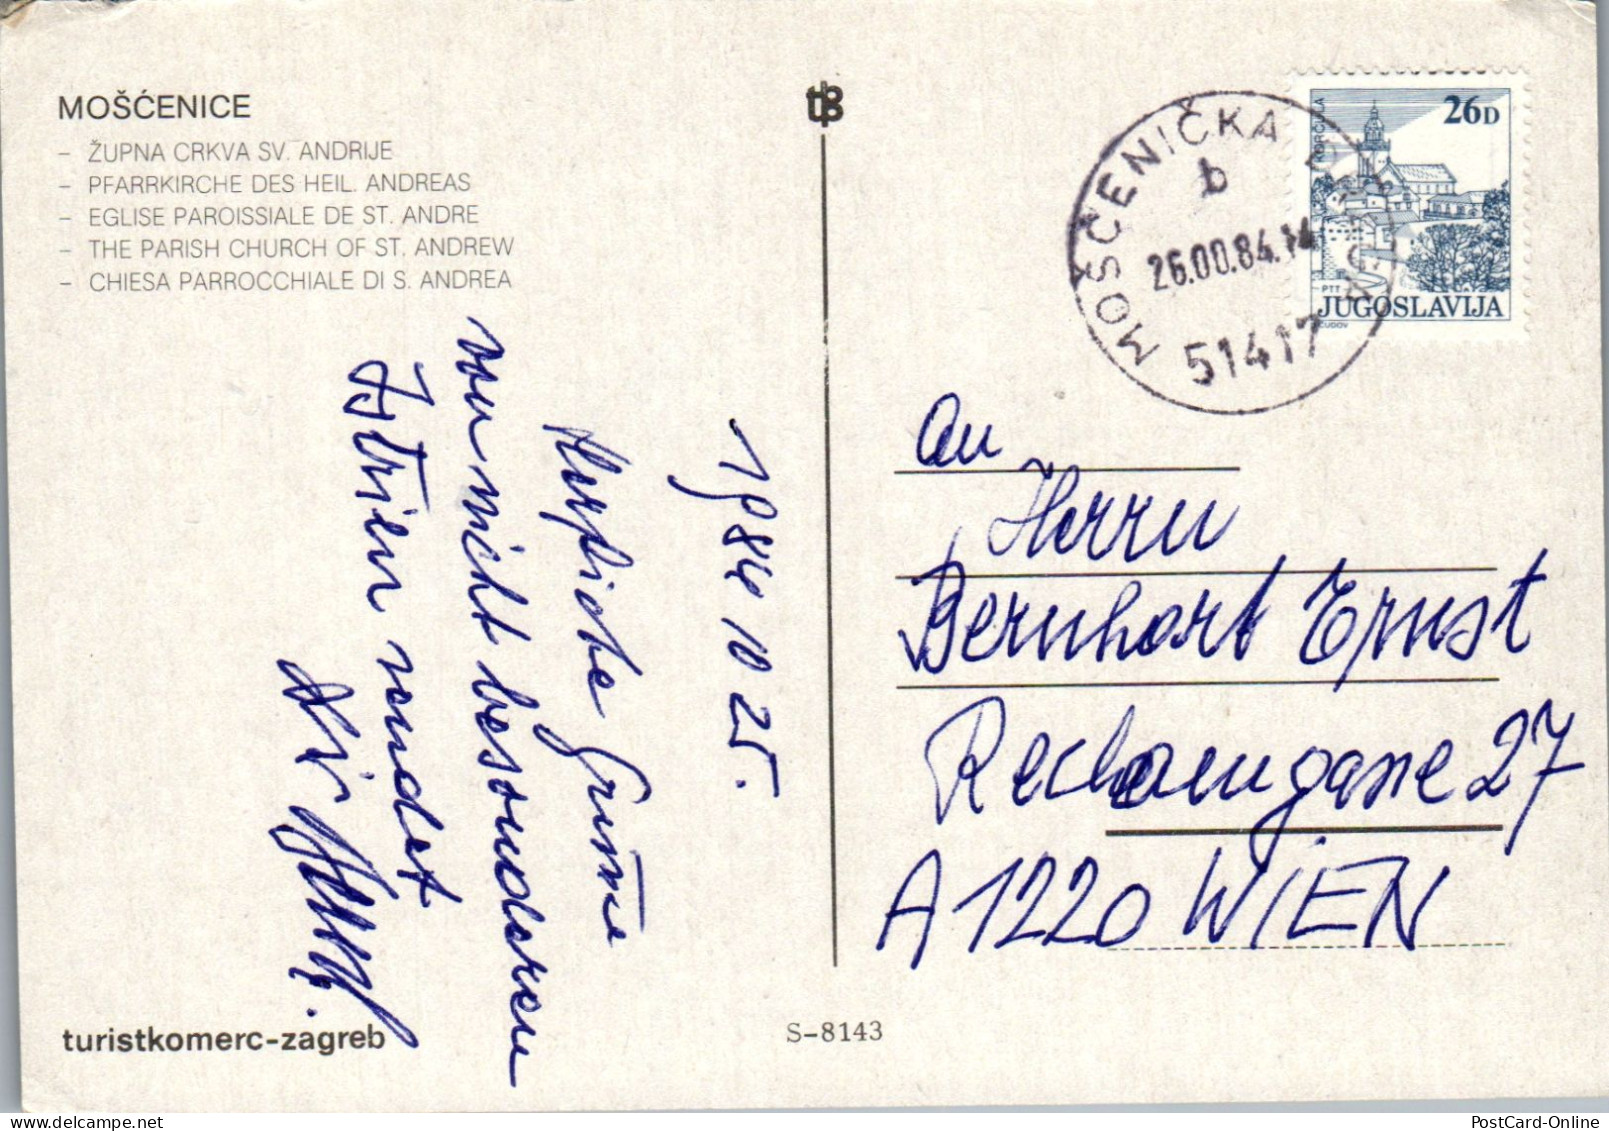 MOŠĆENICE
– ŽUPNA CRKVA SV. ANDRIJE
– PFARRKIRCHE DES HEIL. ANDREAS
– EGLISE PAROISSIALE DE ST. ANDRE
– THE PARISH CHURCH OF ST. ANDREW
– CHIESA PARROCCHIALE DI S. ANDREA
1984 10 25.
Herzliche Grüße
von nicht besonderen
Istrien sendet
turistkomerc-zagreb
S-8143
tz
MOŠĆENIČKA DRAGA
b
26.00.84.14
51417
KORČULA
26D
PTT
JUGOSLAVIJA
An
Herrn
Bernhart Ernst
27
A 1220 WIEN
PostCard-Online